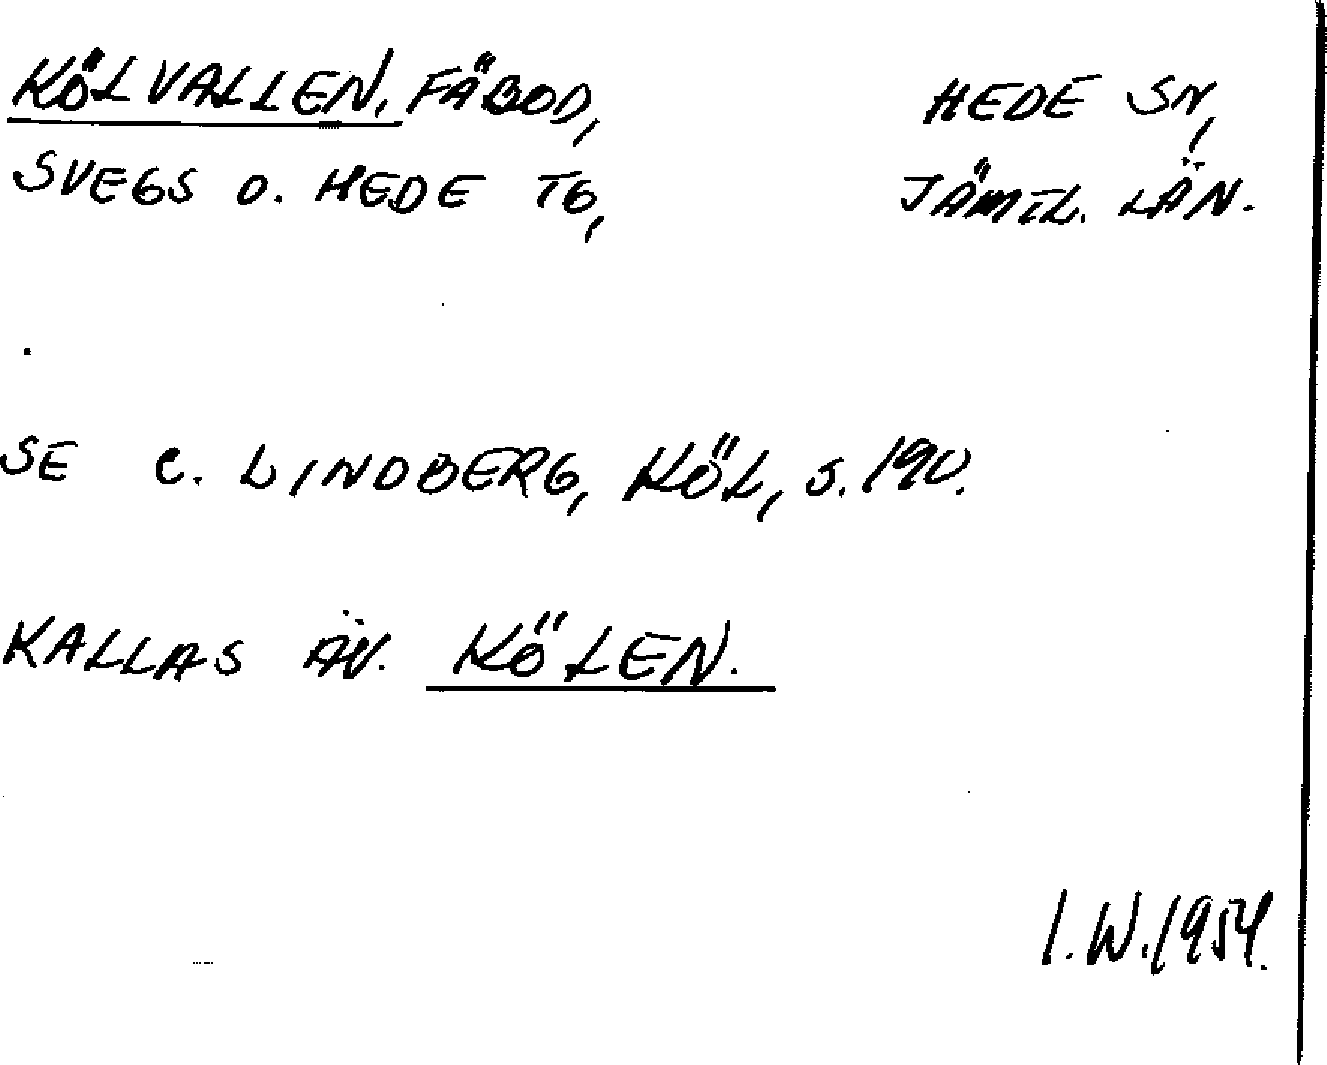 KÖLVALLEN, FÄBOD, HEDE SN,
SVEGS O. HEDE TG, JÄMTL. LÄN.
SE C. LINDBERG, KÖL, S. 190.
KALLAS ÄV. KÖLEN.
I.W.1954.